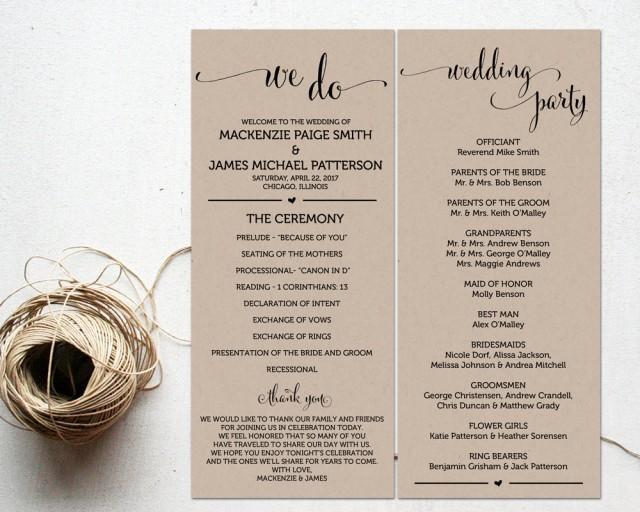 we do
WELCOME TO THE WEDDING OF
MACKENZIE PAIGE SMITH
&
JAMES MICHAEL PATTERSON
SATURDAY, APRIL 22, 2017
CHICAGO, ILLINOIS
THE CEREMONY
PRELUDE - "BECAUSE OF YOU"
SEATING OF THE MOTHERS
PROCESSIONAL- "CANON IN D"
READING - 1 CORINTHIANS: 13
DECLARATION OF INTENT
EXCHANGE OF VOWS
EXCHANGE OF RINGS
PRESENTATION OF THE BRIDE AND GROOM
RECESSIONAL
thank you
WE WOULD LIKE TO THANK OUR FAMILY AND FRIENDS
FOR JOINING US IN CELEBRATION TODAY.
WE FEEL HONORED THAT SO MANY OF YOU
HAVE TRAVELED TO SHARE OUR DAY WITH US.
WE HOPE YOU ENJOY TONIGHT'S CELEBRATION
AND THE ONES WE'LL SHARE FOR YEARS TO COME.
WITH LOVE,
MACKENZIE & JAMES
wedding
party
OFFICIANT
Reverend Mike Smith
PARENTS OF THE BRIDE
Mr. & Mrs. Bob Benson
PARENTS OF THE GROOM
Mr. & Mrs. Keith O'Malley
GRANDPARENTS
Mr. & Mrs. Andrew Benson
Mr. & Mrs. George O'Malley
Mrs. Maggie Andrews
MAID OF HONOR
Molly Benson
BEST MAN
Alex O'Malley
BRIDESMAIDS
Nicole Dorf, Alissa Jackson,
Melissa Johnson & Andrea Mitchell
GROOMSMEN
George Christensen, Andrew Crandell,
Chris Duncan & Matthew Grady
FLOWER GIRLS
Katie Patterson & Heather Sorensen
RING BEARERS
Benjamin Grisham & Jack Patterson